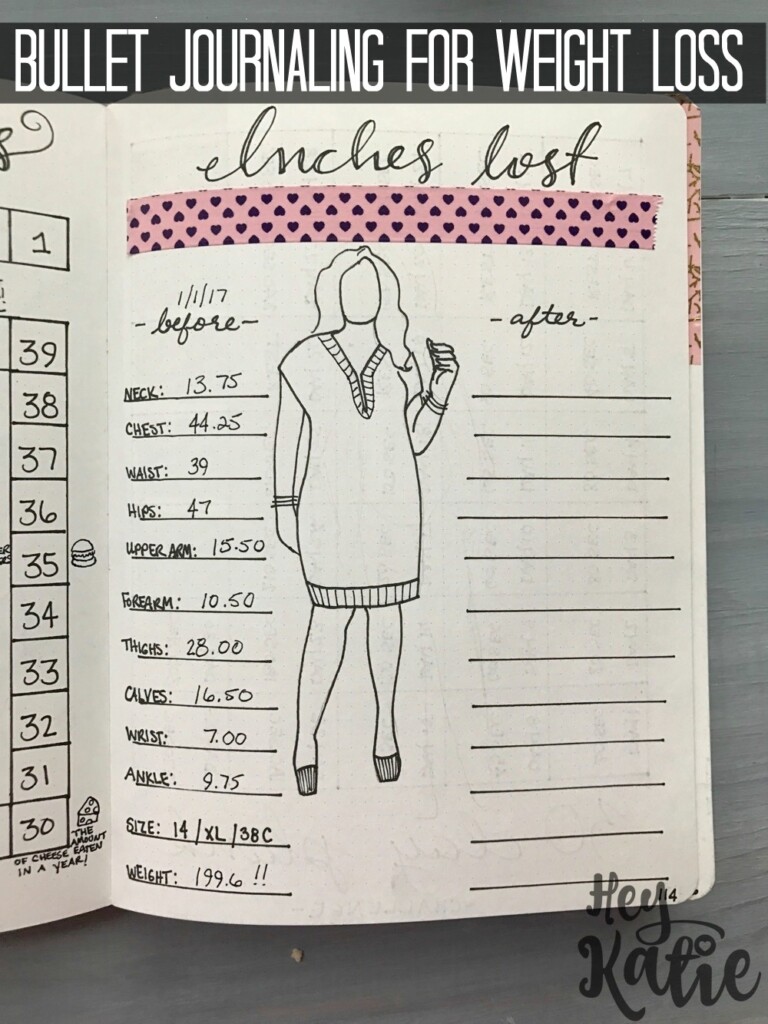 BULLET JOURNALING FOR WEIGHT LOSS
Inches lost
1/1/17
-before-
-after-
NECK: 13.75
CHEST: 44.25
WAIST: 39
HIPS: 47
UPPER ARM: 15.50
FOREARM: 10.50
THIGHS: 28.00
CALVES: 16.50
WRIST: 7.00
ANKLE: 9.75
SIZE: 14/XL/38C
WEIGHT: 199.6 !!
114
1
39
38
37
36
35
34
33
32
31
30
THE
AMOUNT
OF CHEESE EATEN
IN A YEAR!
Hey
Katie